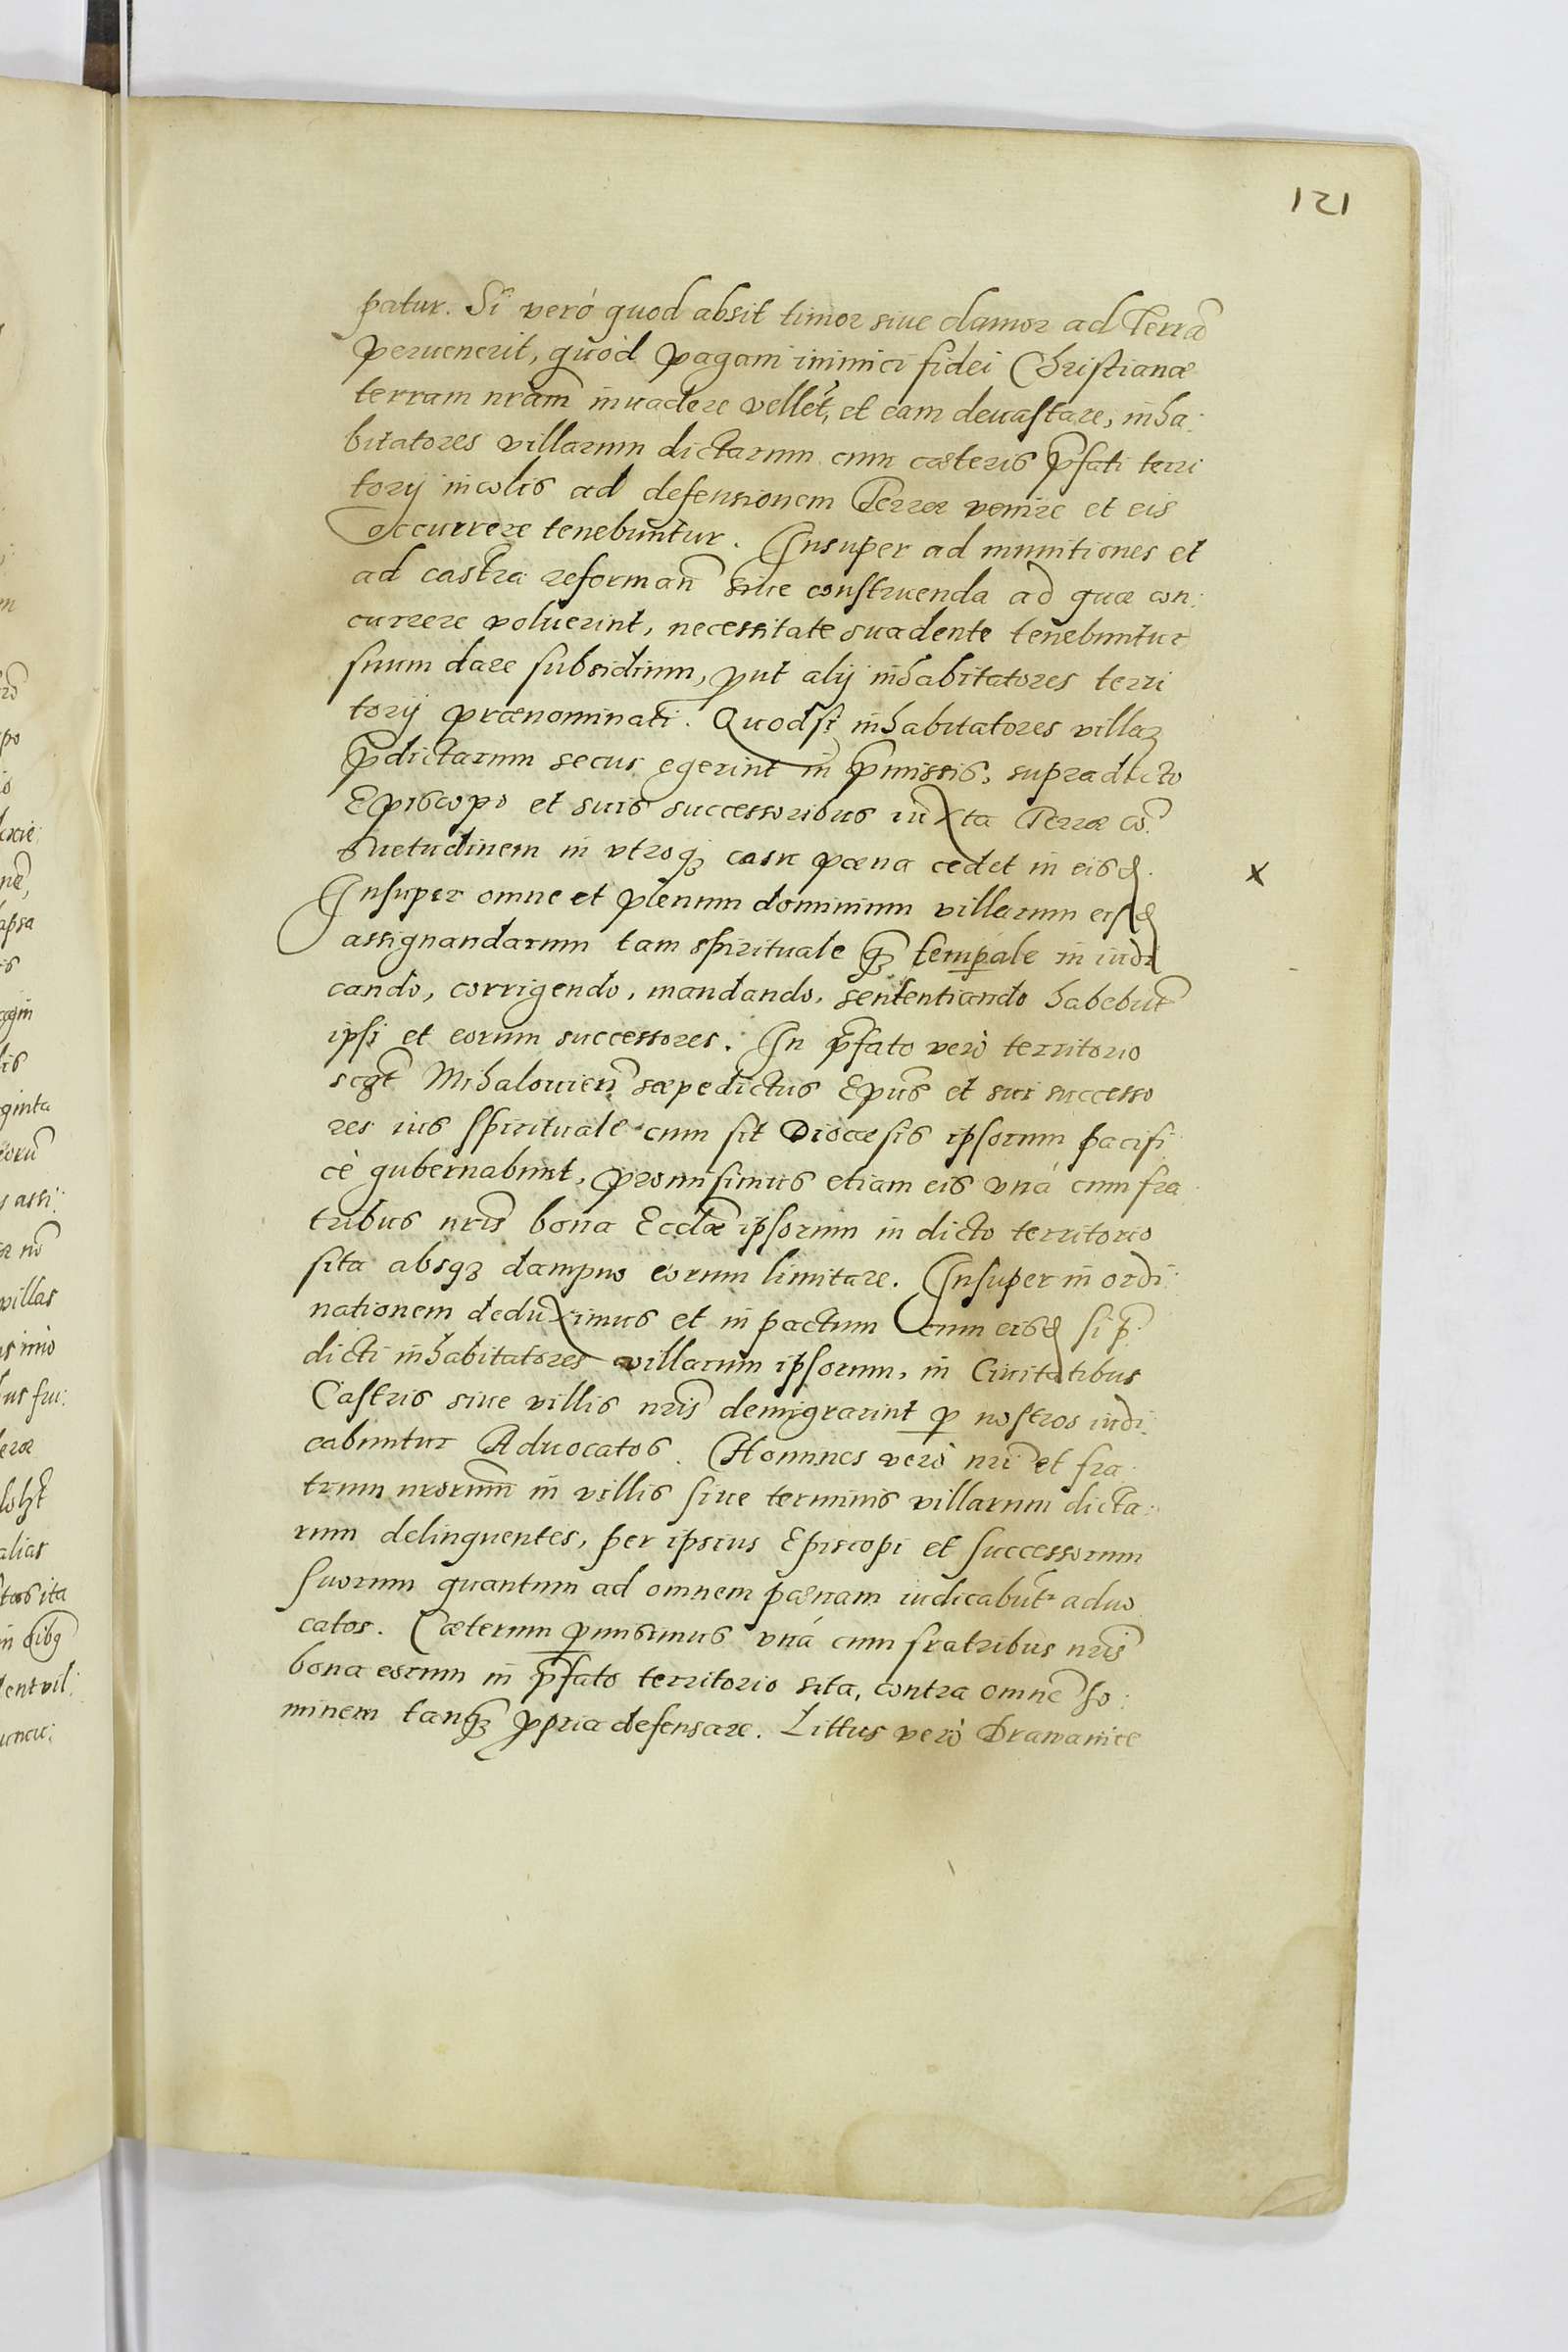 121
patur. Si verò quod absit timor siue clamor ad Terrã
peruenerit, quòd pagani inimici fidei Christianæ
terram nrãm inuadere vellẽt, et eam deuastare, inha:
bitatores villarum dictarum cum cæteris p̃fati terri
torij incolis ad defensionem Terræ venire et eis
occurrere tenebuntur. Insuper ad munitiones et
ad castra reformañ siue construenda ad quæ con:
currere voluerint, necessitate suadente tenebuntur
suum dare subsidium, ꝓut alij inhabitatores terri
torij prænominati. Quodsi inhabitatores villaꝝ
p̃dictarum secus egerint in p̃missis, supradicto
Episcopo et suis successoribus iuxta Terræ cõ:
suetudinem in vtroqꝫ casu pœna cedet in eisd
Insuper omne et plenum dominium villarum eisd
assignandarum tam spirituale qꝫ temꝑale in iudi
cando, corrigendo, mandando, sententiando habebũt
ipsi et eorum successores. In p̃fato verò territorio
scꝫt Mihalouieñ sæpedictus Epũs et sui successo
res ius spirituale cum sit Diocæsis ipsorum pacifi
cè gubernabunt, promisimus etiam eis vná cum fra
tribus nrĩs bona Ecclæ̃ ipsorum in dicto territorio
sita absqꝫ dampno eorum limitare. Insuper in ordi:
nationem deduximus et in pactum cum eisd si p̃:
dicti inhabitatores villarum ipsorum, in Ciuitatibus
Castris siue villis nrĩs demigrarint ꝑ nostros iudi:
cabuntur Aduocatos. Homines verò nrĩ et fra
trum nrorũm in villis siue terminis villarum dicta:
rum delinquentes, per ipsius Episcopi et successorum
suorum quantum ad omnem pœnam iudicabũtr aduo
catos. Cæterum ꝓmisimus vná cum fratribus nrĩs
bona eorum in p̃fato territorio sita, contra omnẽ ho:
minem tanqꝫ ꝓpria defensare. Littus verò Drawanice
x